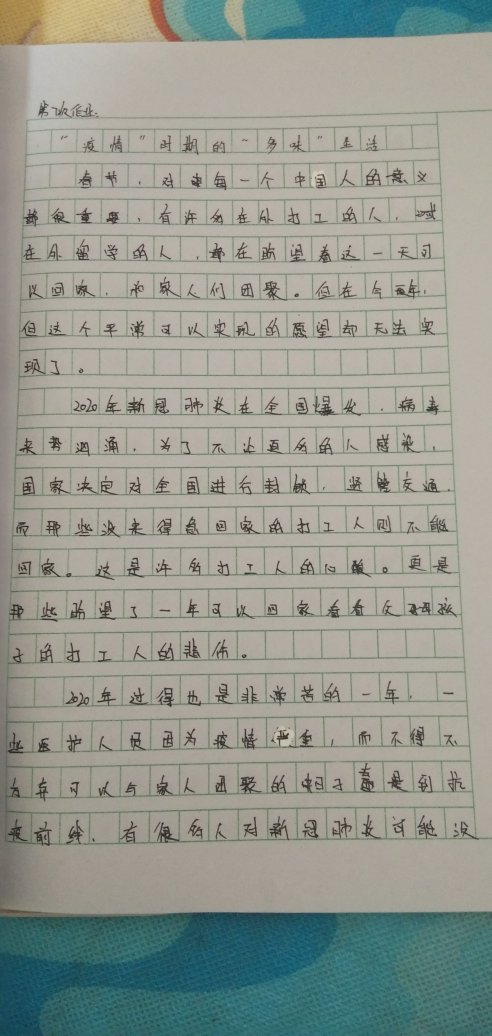 第7次作业:
"疫情"时期的"多味"生活
春节,对每一个中国人的意义
都很重要,有许多在外打工的人,
在外留学的人,都在盼望着这一天可
以回家,和家人们团聚。但在今年,
但这个平常可以实现的愿望却无法实
现了。
2020年新冠肺炎在全国爆发,病毒
来势汹涌,为了不让更多的人感染,
国家决定对全国进行封锁,坚管交通,
而那些没来得急回家的打工人则不能
回家。这是许多打工人的心酸。更是
那些盼望了一年可以回家看看父母孩
子的打工人的悲伤。
2020年过得也是非常苦的一年,一
些医护人员因为疫情严重,而不得不
放弃可以与家人团聚的日子是到抗
疫前线,有很多人对新冠肺炎可能没